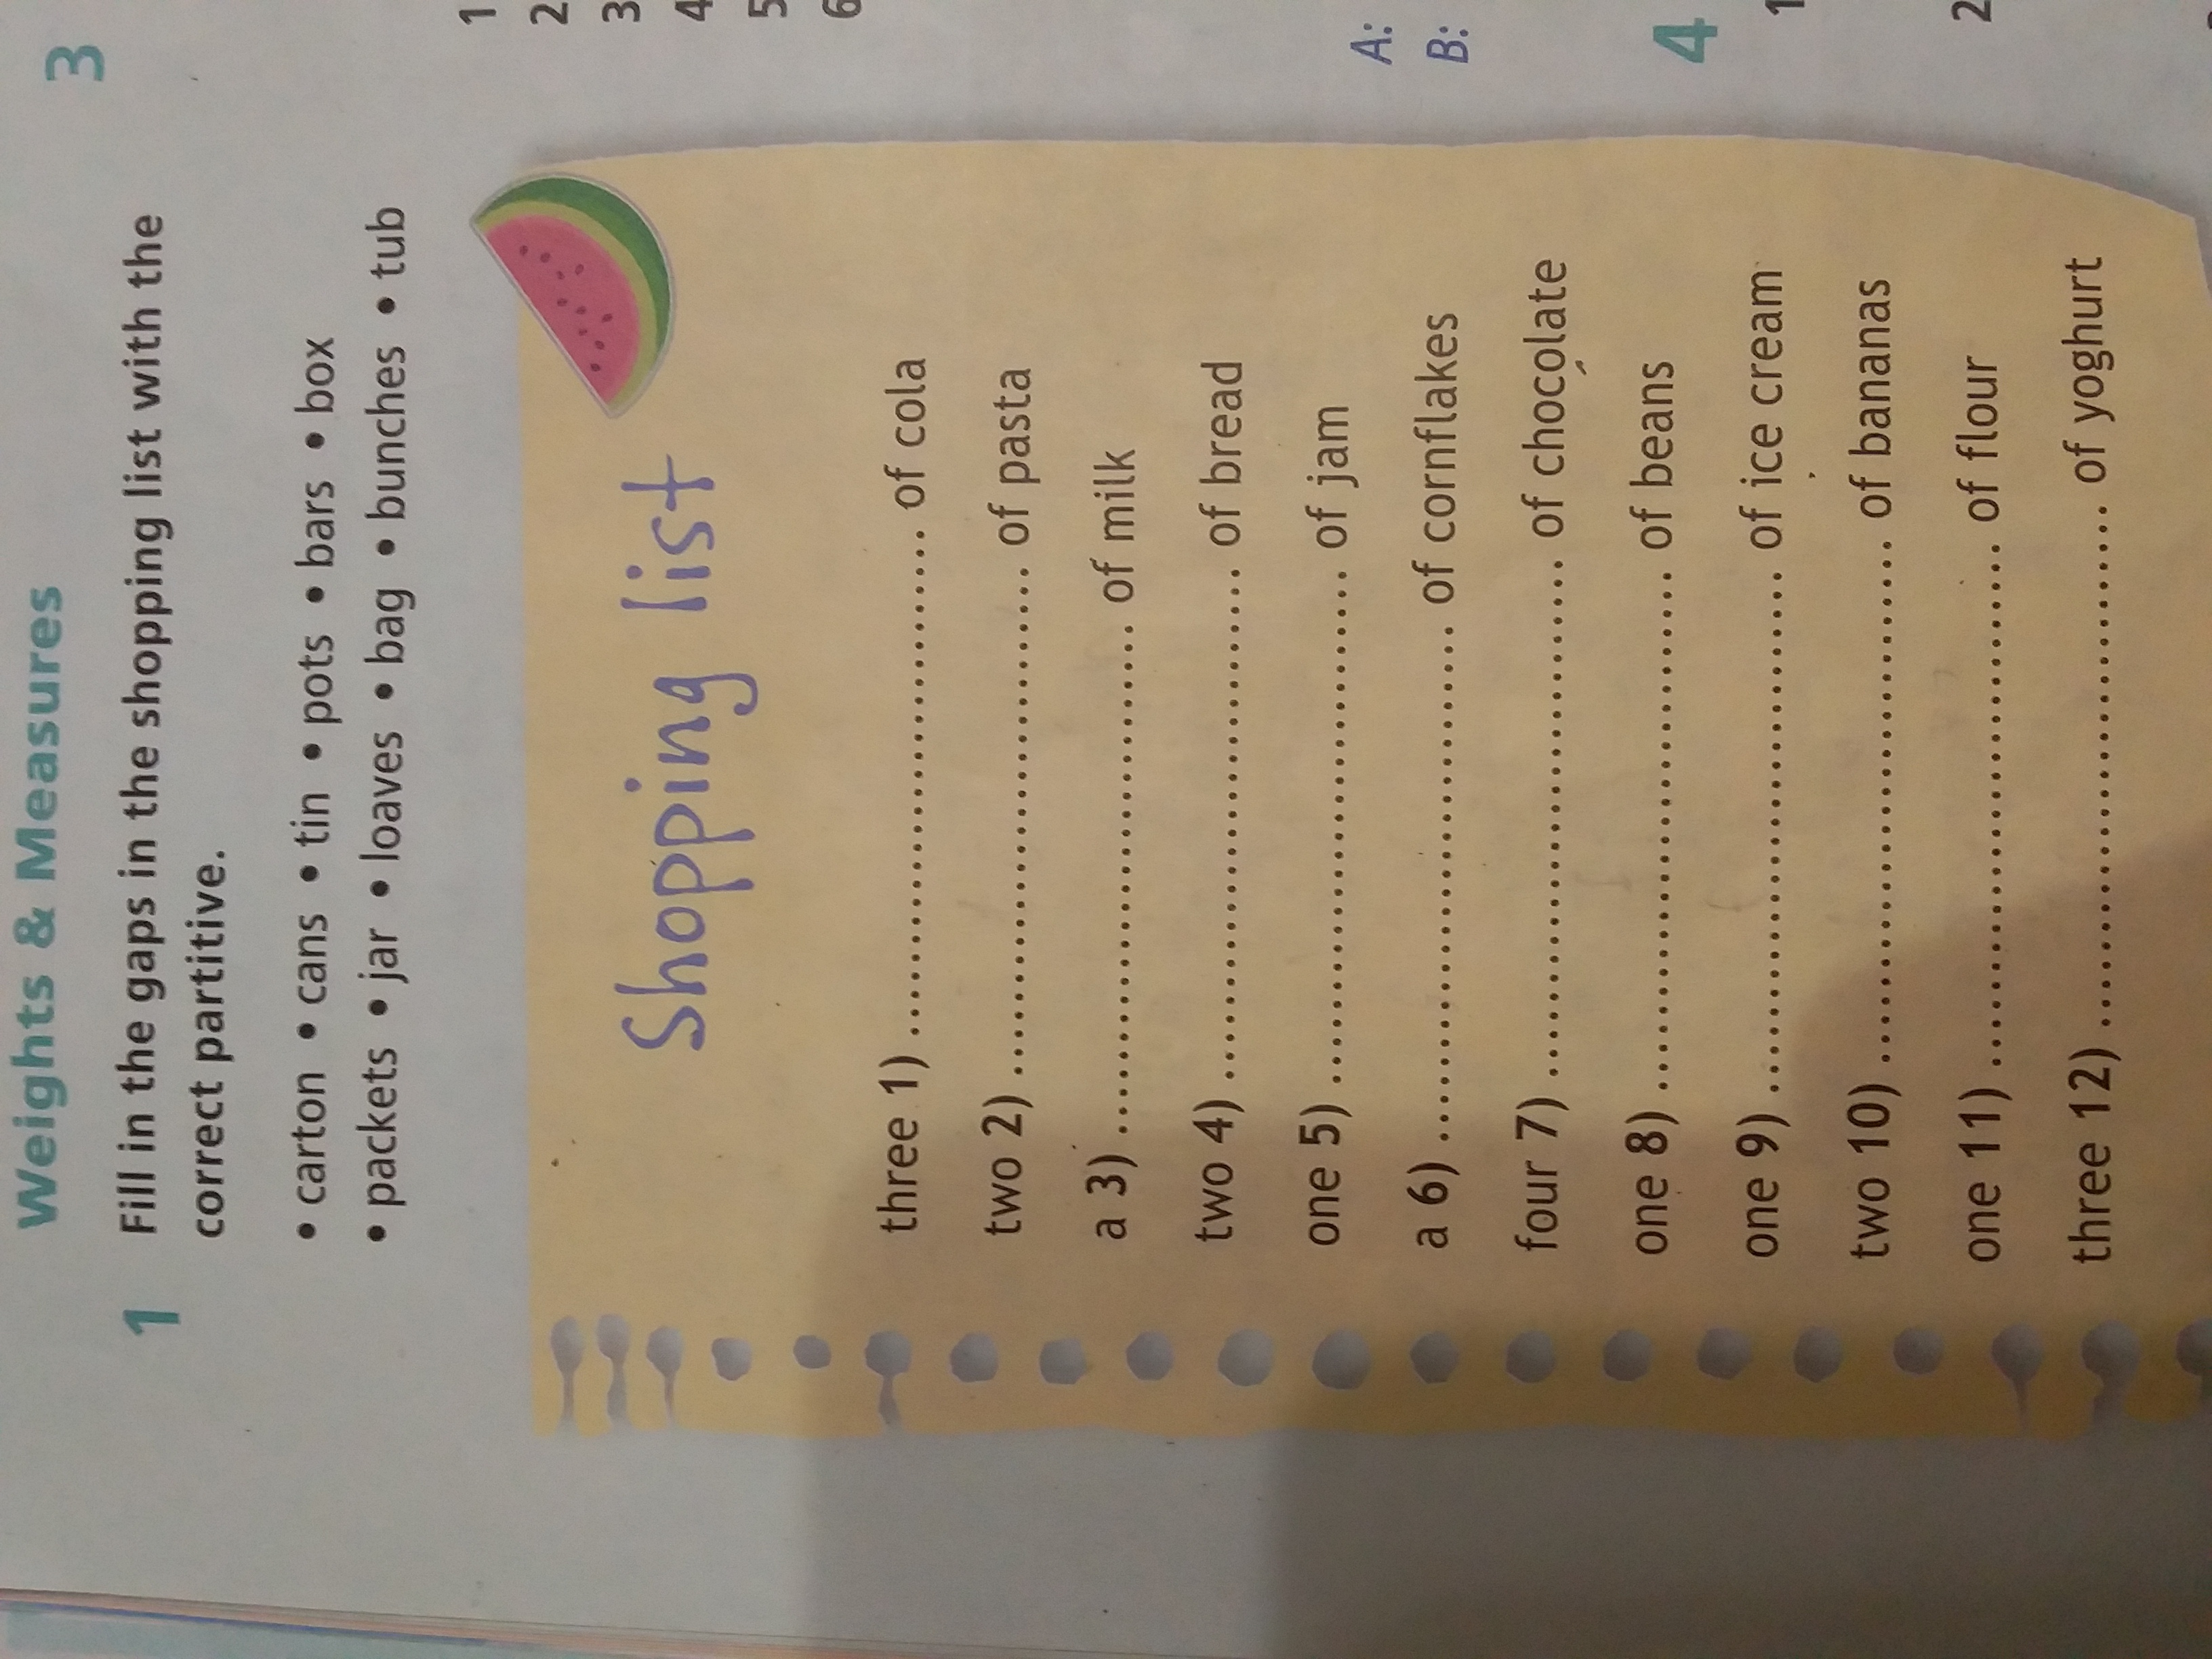 Weights & Measures
1 Fill in the gaps in the shopping list with the
correct partitive.
• carton • cans • tin • pots • bars • box
• packets • jar • loaves • bag • bunches • tub
Shopping list
three 1) .................................... of cola
two 2) .................................... of pasta
a 3) .................................... of milk
two 4) .................................... of bread
one 5) .................................... of jam
a 6) .................................... of cornflakes
four 7) .................................... of chocolate
one 8) .................................... of beans
one 9) .................................... of ice cream
two 10) .................................... of bananas
one 11) .................................... of flour
three 12) .................................... of yoghurt
3
1
2
3
4
5
6
A:
B:
4
1
2